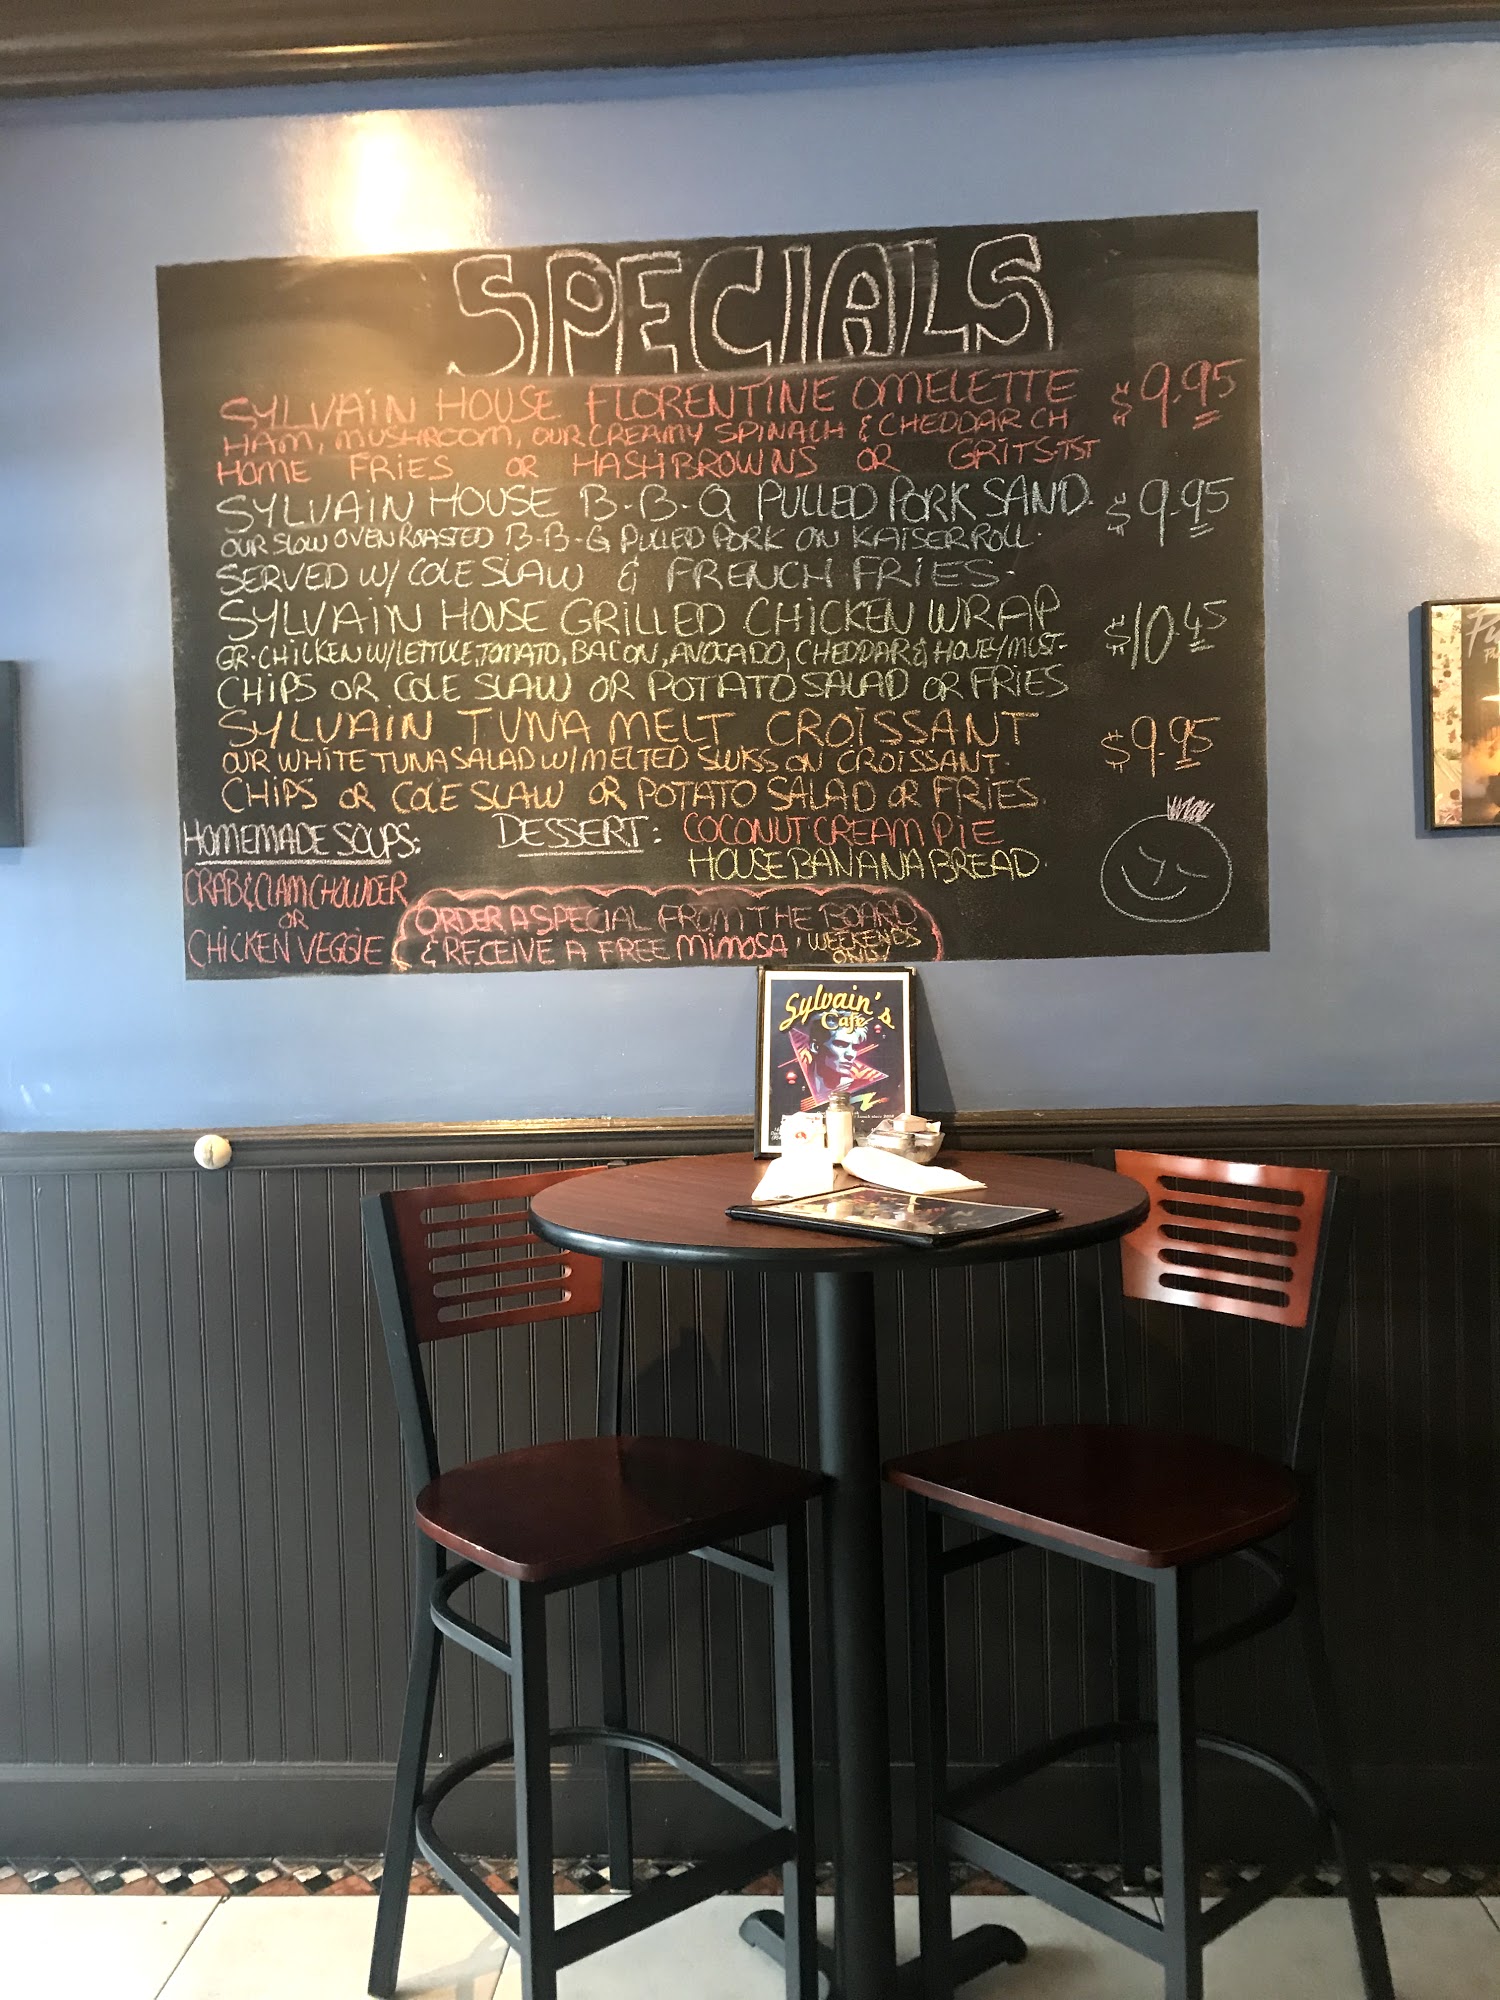 SPECIALS
SYLVAIN HOUSE FLORENTINE OMELETTE $9.95
HAM, MUSHROOM, OUR CREAMY SPINACH & CHEDDAR CH
HOME FRIES OR HASHBROWNS OR GRITS-TST
SYLVAIN HOUSE B-B-Q PULLED PORK SAND. $9.95
OUR SLOW OVEN ROASTED B-B-Q PULLED PORK ON KAISER ROLL.
SERVED W/ COLE SLAW & FRENCH FRIES.
SYLVAIN HOUSE GRILLED CHICKEN WRAP $10.45
GR. CHICKEN W/LETTUCE, TOMATO, BACON, AVOCADO, CHEDDAR & HONEY MUST-
CHIPS OR COLE SLAW OR POTATO SALAD OR FRIES
SYLVAIN TUNA MELT CROISSANT $9.95
OUR WHITE TUNA SALAD W/ MELTED SWISS ON CROISSANT.
CHIPS OR COLE SLAW OR POTATO SALAD OR FRIES.
HOMEMADE SOUPS:
CRAB & CLAM CHOWDER
OR
CHICKEN VEGGIE
DESSERT: COCONUT CREAM PIE
HOUSE BANANA BREAD.
ORDER A SPECIAL FROM THE BOARD
& RECEIVE A FREE MIMOSA, WEEKENDS
ONLY
Sylvain's
Café